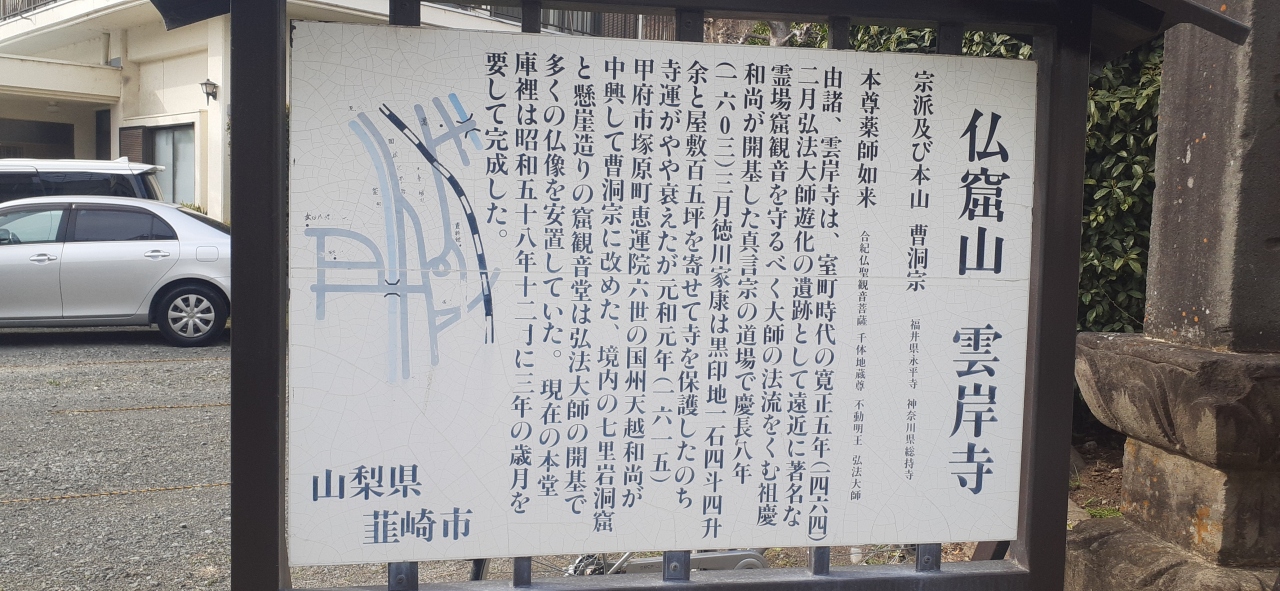 仏窟山 雲岸寺
宗派及び本山 曹洞宗 福井県永平寺 神奈川県総持寺
本尊薬師如来 合紀仏聖観音菩薩 千体地蔵尊 不動明王 弘法大師
由諸、雲岸寺は、室町時代の寛正五年(一四六四)
二月弘法大師遊化の遺跡として遠近に著名な
霊場窟観音を守るべく大師の法流をくむ祖慶
和尚が開基した真言宗の道場で慶長八年
(一六0三)三月徳川家康は黒印地一石四斗四升
余と屋敷百五坪を寄せて寺を保護したのち
寺運がやや衰えたが元和元年(一六一五)
甲府市塚原町恵運院六世の国州天越和尚が
中興して曹洞宗に改めた、境内の七里岩洞窟
と懸崖造りの窟観音堂は弘法大師の開基で
多くの仏像を安置していた。現在の本堂
庫裡は昭和五十八年十二丁に三年の歳月を
要して完成した。
山梨県
韮崎市